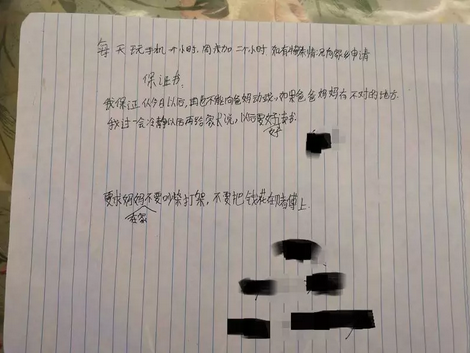 每天玩手机一个小时,周六加二个小时 如有特殊情况向家长申请
保证书
我保证从今日以后,再也不能向爸妈动武,如果爸爸妈妈有不对的地方.
我过一会冷静以后再给家长说,以后要好
好
要求妈妈不要吵架打架,不要把钱花在赌博上.
爸爸